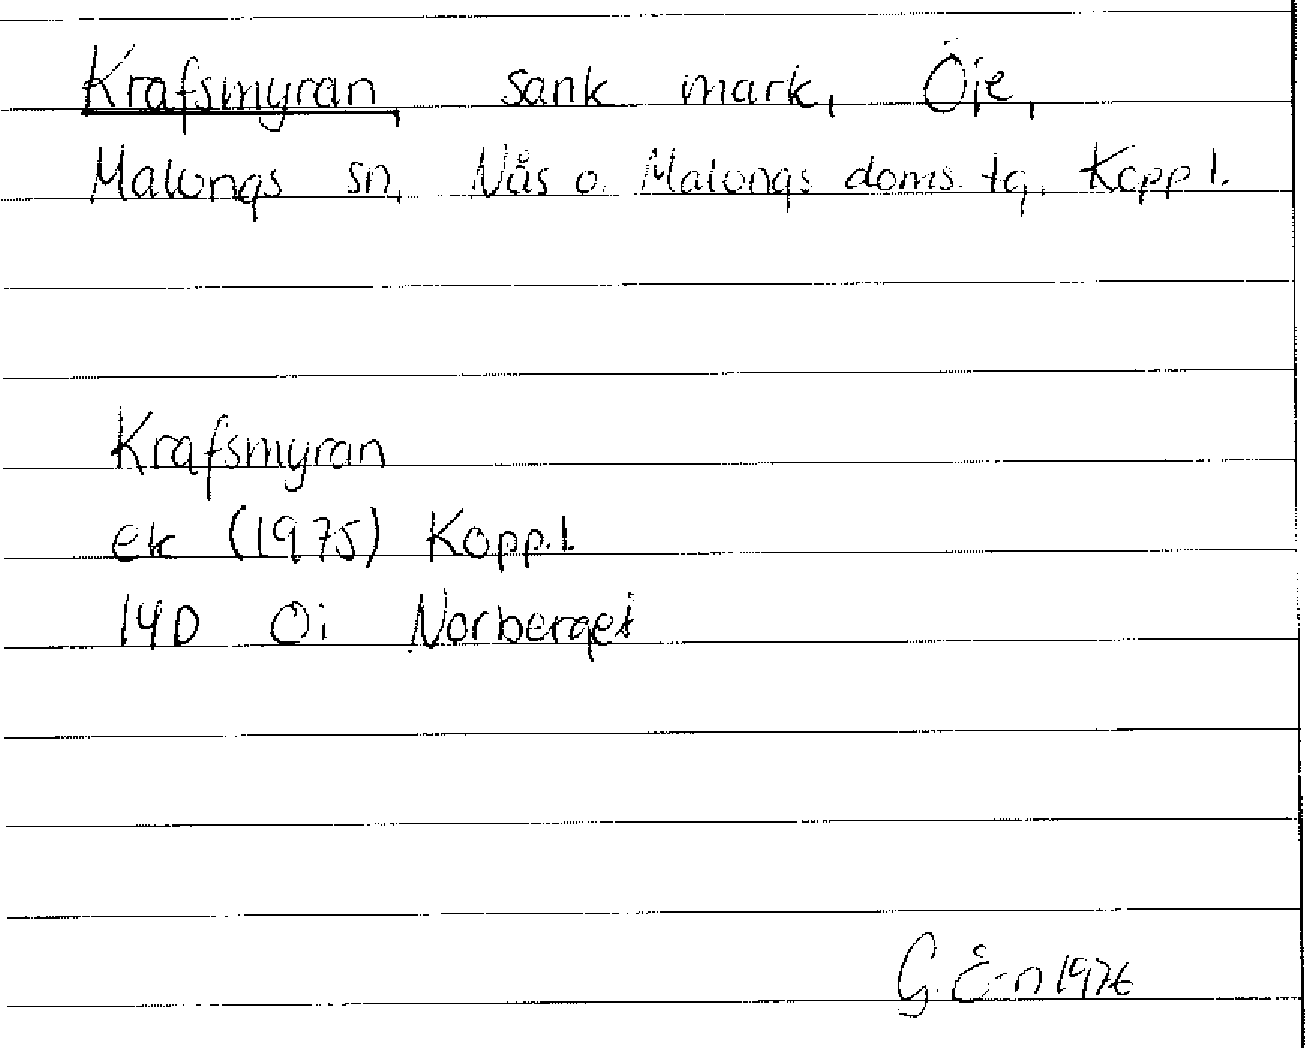 Krafsmyran, sank mark, Öje,
Malungs sn, Nås o. Malungs doms. tg. Kopp l.
Krafsmyran
ek (1975) Kopp. l.
14D 0i Norberget
G. E-n 1976